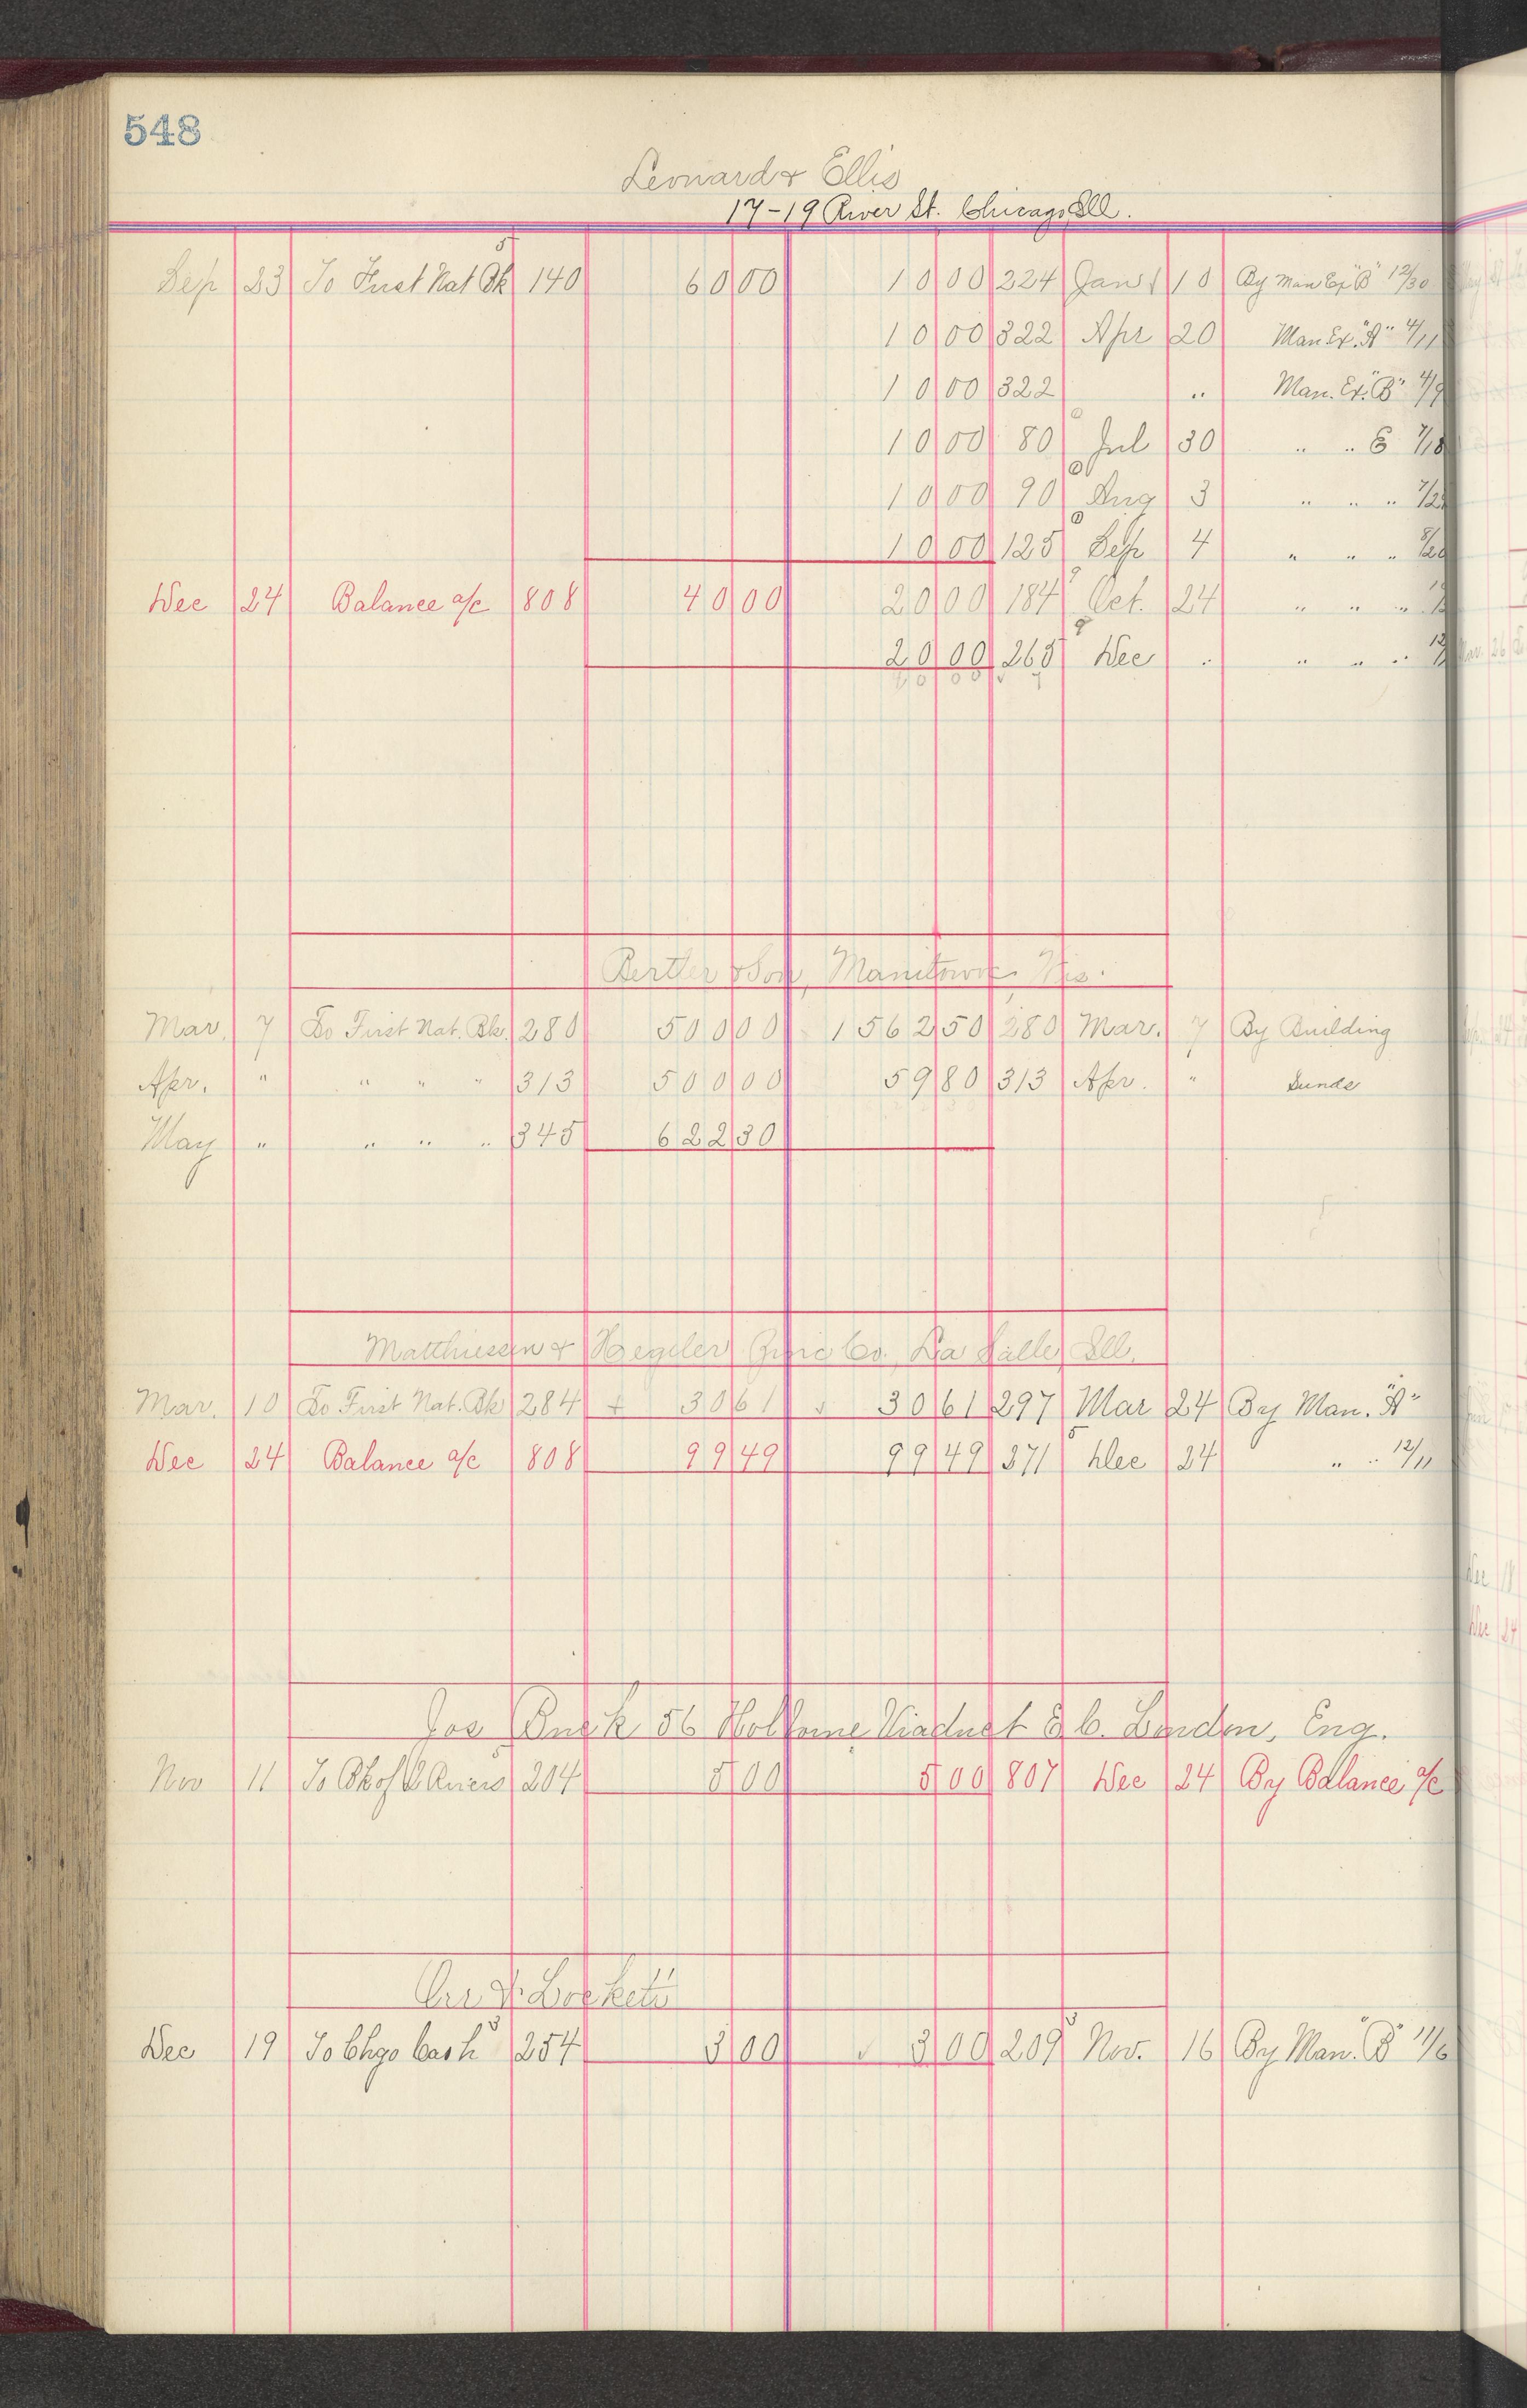 548
Leonard & Ellis
17-19 River St. Chicago, Ill.
Sep 23 To First Nat Bk 5 140 60 00 10 00 224 Jan 10 By Man Ex "B" 12/30
10 00 322 Apr 20 Man. Ex. "A" 4/11
10 00 322 " Man. Ex. "B" 4/9
10 00 80 Jul 30 " " E 7/18
10 00 90 Aug 3 " " "
10 00 125 Sep 4 " " "
Dec 24 Balance a/c 808 40 00 20 00 184 Oct. 24 " " "
20 00 265 Dec " " " "
Bertler & Son, Manitowoc Wis.
Mar. 7 To First Nat. Bk. 280 500 00 1562 50 280 Mar. 7 By Building
Apr. " " " " 313 500 00 59 80 313 Apr. " Sunds
May " " " " 345 622 30
Matthiessen & Hegeler Zinc Co., La Salle, Ill.
Mar. 10 To First Nat. Bk 284 30 61 30 61 297 Mar 24 By Man. "A"
Dec 24 Balance a/c 808 99 49 99 49 371 Dec 24 " " 12/11
Jos Buck 56 Holborne Viaduct E. C. London, Eng.
Nov 11 To Bk of 2 Rivers 204 5 00 5 00 807 Dec 24 By Balance a/c
Orr & Lockett
Dec 19 To Chgo Cash 3 254 3 00 3 00 209 3 Nov. 16 By Man. "B" 11/6